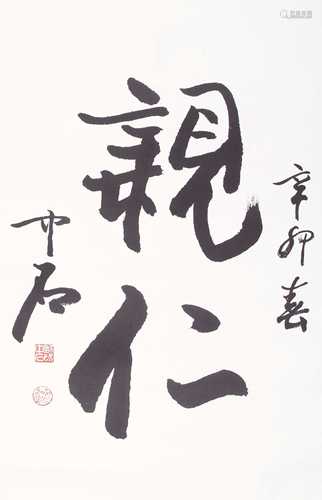 辛卯春
親仁
中石